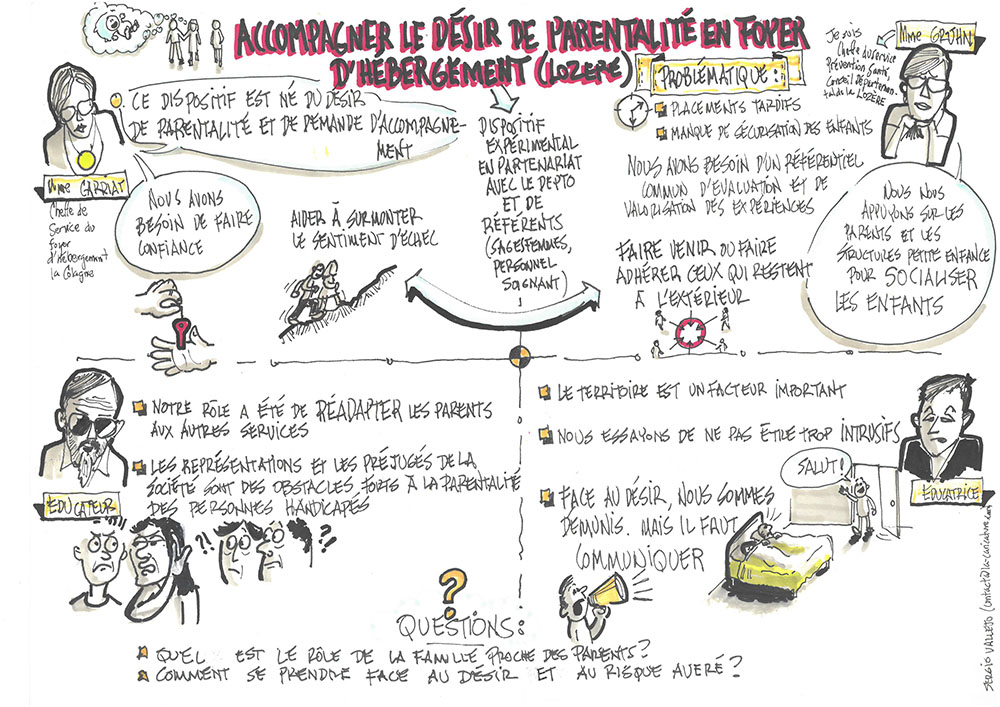 ACCOMPAGNER LE DÉSIR DE PARENTALITÉ EN FOYER
D'HÉBERGEMENT (LOZÈRE)
CE DISPOSITIF EST NÉ DU DÉSIR
DE PARENTALITÉ ET DE DEMANDE D'ACCOMPAGNE-
MENT
Mme GARRIAT
Cheffe de
Service du
Foyer
d'Hébergement
NOUS AVONS
BESOIN DE FAIRE
CONFIANCE
AIDER À SURMONTER
LE SENTIMENT D'ÉCHEC
DISPOSITIF
EXPÉRIMENTAL
EN PARTENARIAT
AVEC LE DEPTO
ET DE
RÉFÉRENTS
(SAGES FEMMES,
PERSONNEL
SOIGNANT)
PROBLÉMATIQUE :
PLACEMENTS TARDIFS
MANQUE DE SÉCURISATION DES ENFANTS
NOUS AVONS BESOIN D'UN RÉFÉRENTIEL
COMMUN D'ÉVALUATION ET DE
VALORISATION DES EXPÉRIENCES
FAIRE VENIR OU FAIRE
ADHÉRER CEUX QUI RESTENT
À L'EXTÉRIEUR
Je suis
Cheffe du service
Prévention Santé,
Conseil Départemen-
tal de la LOZÈRE
Mme GRUHN
NOUS NOUS
APPUYONS SUR LES
PARENTS ET LES
STRUCTURES PETITE ENFANCE
POUR SOCIALISER
LES ENFANTS
EDUCATEUR
NOTRE RÔLE A ÉTÉ DE RÉADAPTER LES PARENTS
AUX AUTRES SERVICES
LES REPRÉSENTATIONS ET LES PRÉJUGÉS DE LA
SOCIÉTÉ SONT DES OBSTACLES FORTS À LA PARENTALITÉ
DES PERSONNES HANDICAPÉS
?!
?
LE TERRITOIRE EST UN FACTEUR IMPORTANT
NOUS ESSAYONS DE NE PAS ETRE TROP INTRUSIFS
FACE AU DÉSIR, NOUS SOMMES
DEMUNIS. MAIS IL FAUT
COMMUNIQUER
SALUT!
EDUCATRICE
?
QUESTIONS :
QUEL EST LE RÔLE DE LA FAMILLE PROCHE DES PARENTS?
COMMENT SE PRENDRE FACE AU DÉSIR ET AU RISQUE AVERÉ?
SERGIO VALLEJO (contact@la-caricature.com)